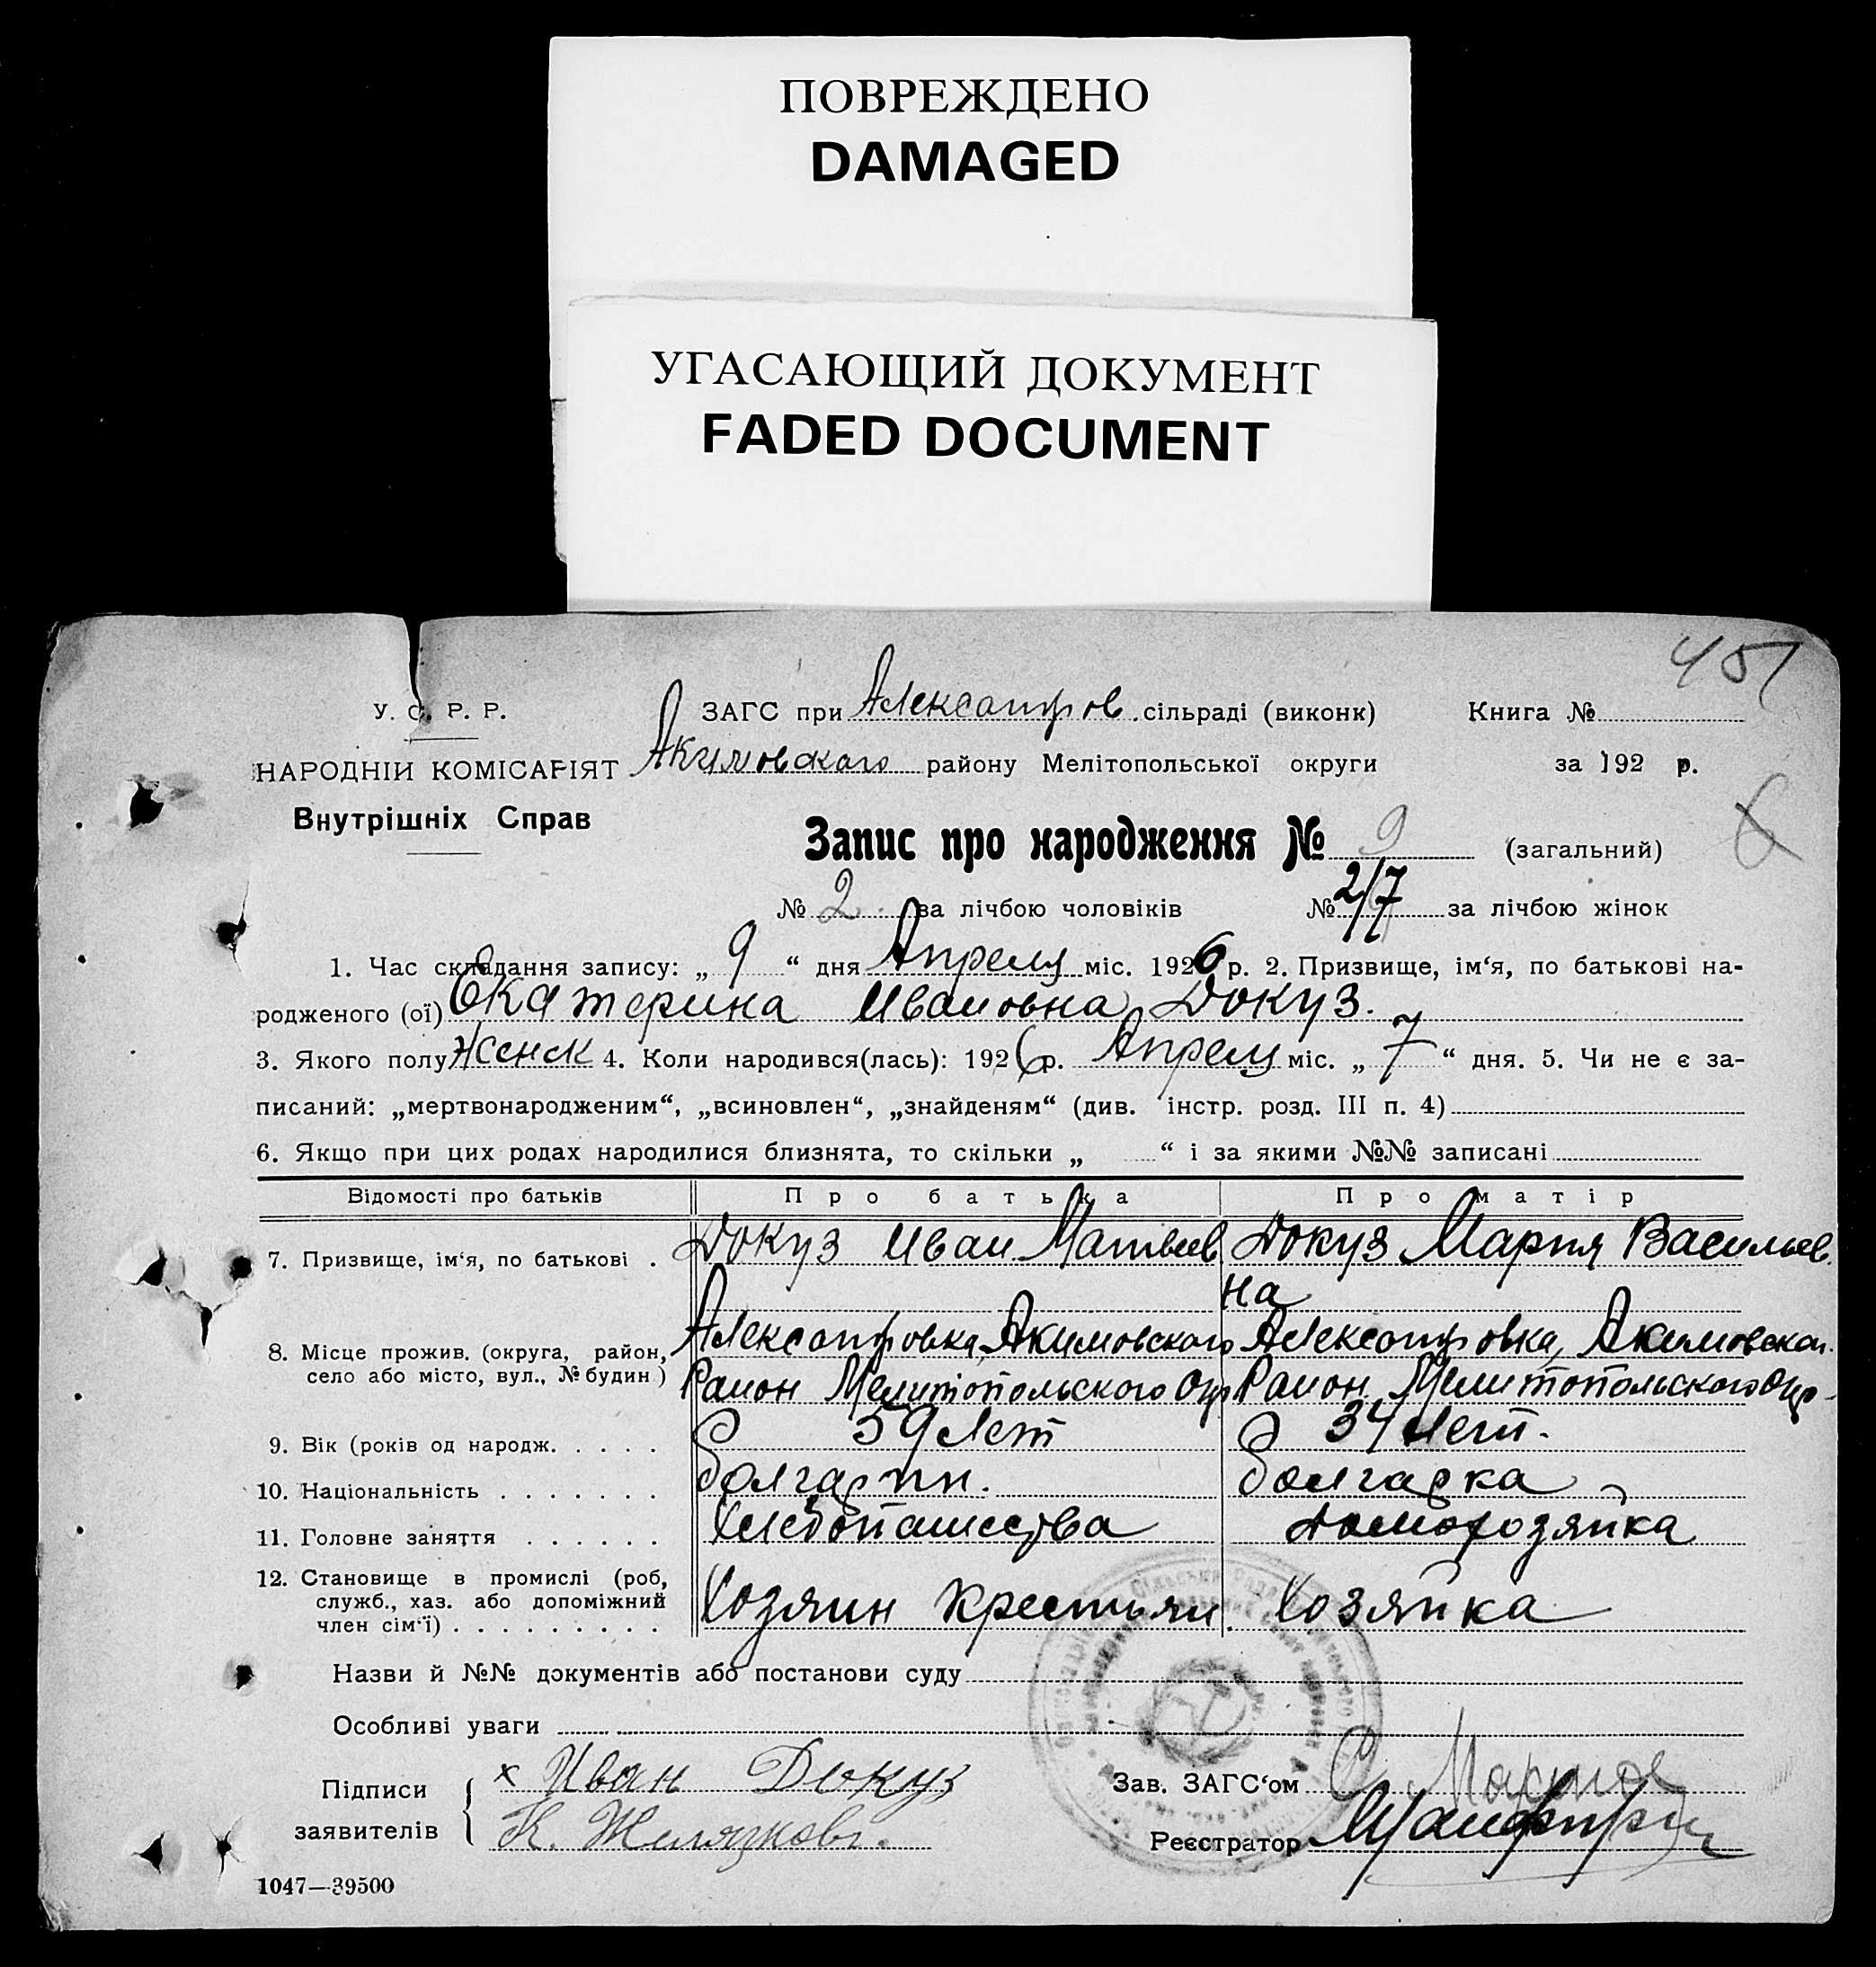 ПОВРЕЖДЕНО
DAMAGED
УГАСАЮЩИЙ ДОКУМЕНТ
FADED DOCUMENT
451
У. С. Р. Р. ЗАГС при Александров. сільраді (виконк) Книга №
НАРОДНІЙ КОМІСАРІЯТ Акимовского району Мелітопольської округи за 192 р.
Внутрішніх Справ
Запис про народження № 9 (загальний)
№ 2 за лічбою чоловіків № 2/7 за лічбою жінок
1. Час складання запису: „ 9 “ дня Апреля міс. 1926 р. 2. Призвище, ім‘я, по батькові на-
родженого (ої) Екатерина Ивановна Докуз.
3. Якого полу Женск 4. Коли народився(лась): 1926 р. Апреля міс. „ 7 “ дня. 5. Чи не є за-
писаний: „мертвонародженим“, „всиновлен“, „знайденям“ (див. інстр. розд. III п. 4)
6. Якщо при цих родах народилися близнята, то скільки „ “ і за якими №№ записані
Відомості про батьків Про батька Про матір
7. Призвище, ім‘я, по батькові . Докуз Иван Матвеев Докуз Мария Васильев.
на
8. Місце прожив. (округа, район, Александровка, Акимовского Александровка, Акимовскаг.
село або місто, вул., № будин) Раион Мелитопольского Окр Раион Мелитопольского Окр.
9. Вік (років од народж. . . . . 59 лет 34 лет.
10. Національність . . . . . . . болгарин. болгарка
11. Головне заняття . . . . . . Хлебопашества домохозяйка
12. Становище в промислі (роб,
служб., хаз. або допоміжний Хозяин крестьян Хозяйка
член сім‘ї) . . . . . . . . .
Назви й №№ документів або постанови суду
Особливі уваги
Підписи х Иван Докуз Зав. ЗАГС‘ом
заявителів К. Желязковъ. Реєстратор
1047—39500